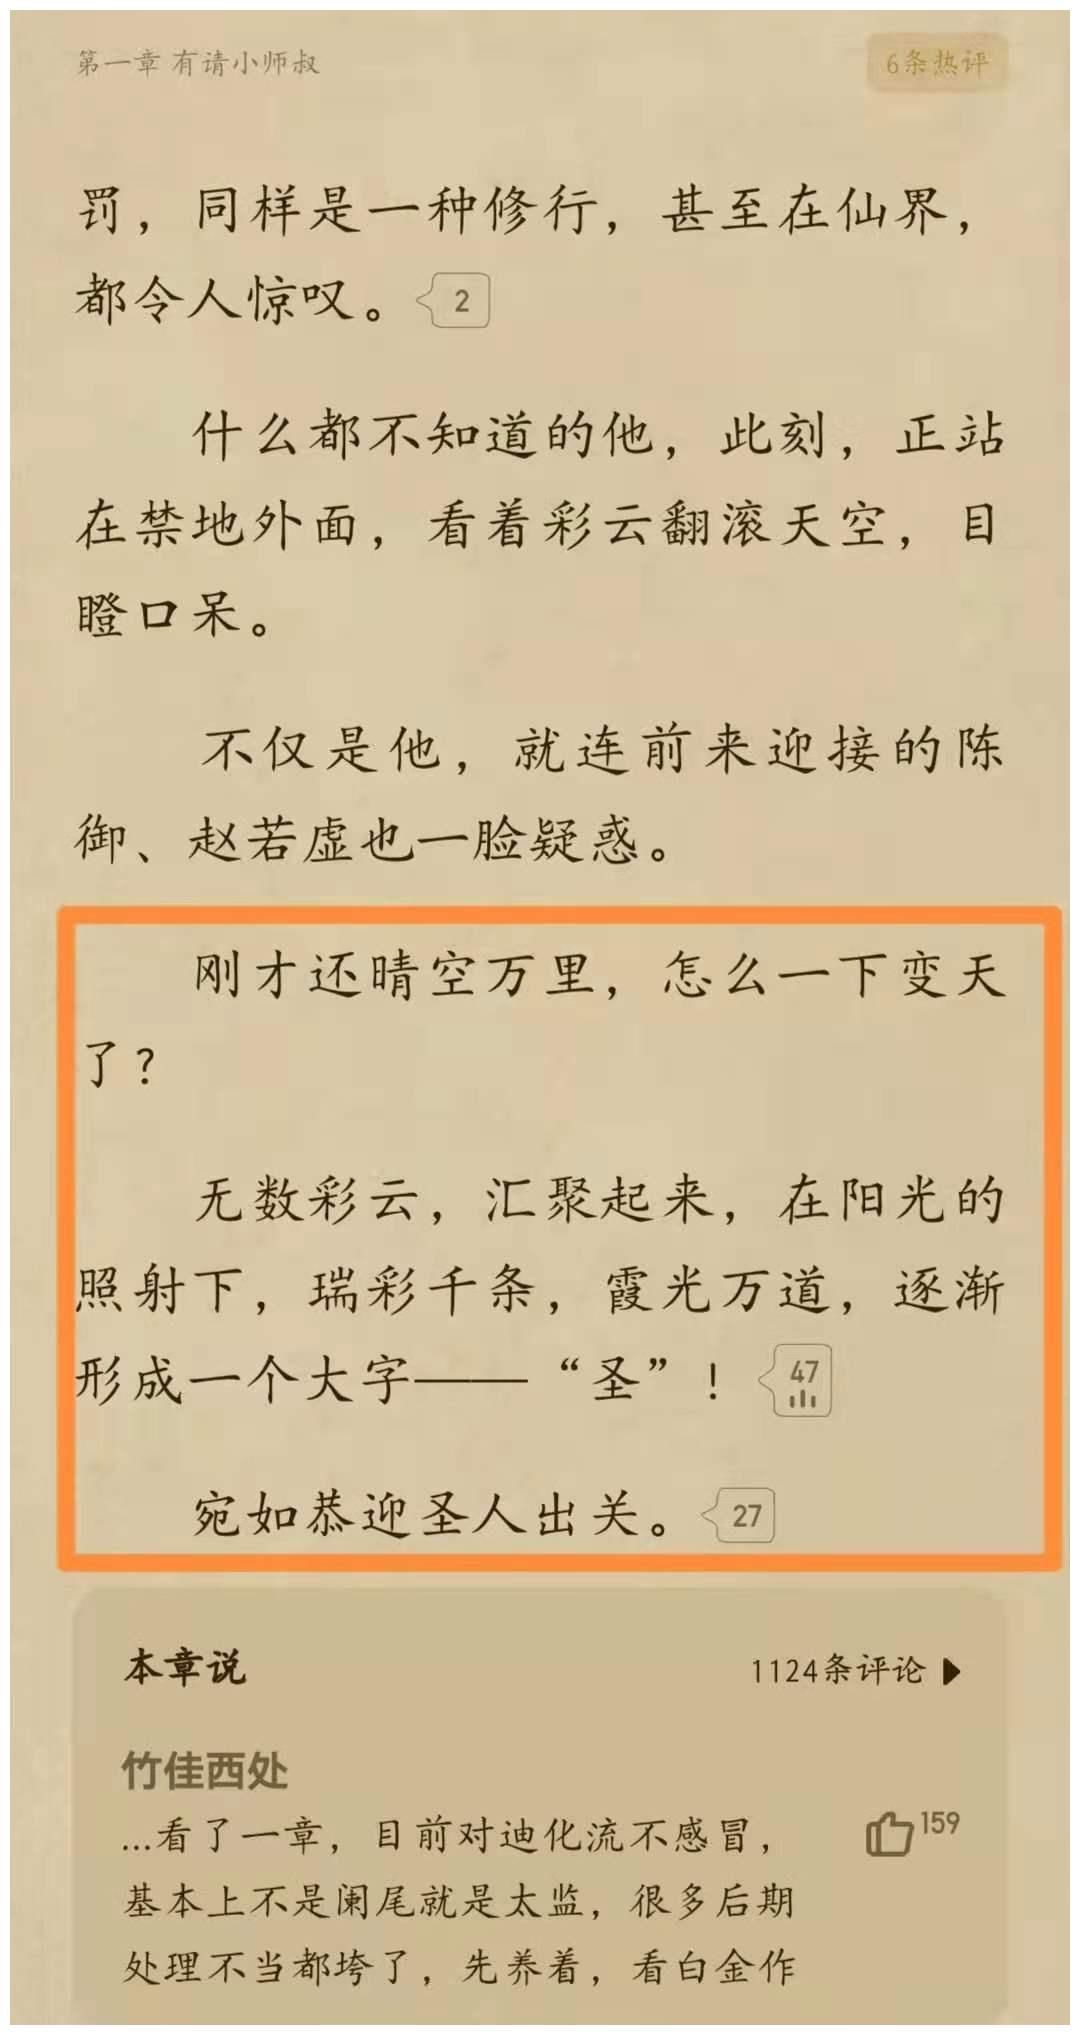 第一章 有请小师叔
6条热评
罚，同样是一种修行，甚至在仙界，
都令人惊叹。 2
什么都不知道的他，此刻，正站
在禁地外面，看着彩云翻滚天空，目
瞪口呆。
不仅是他，就连前来迎接的陈
御、赵若虚也一脸疑惑。
刚才还晴空万里，怎么一下变天
了？
无数彩云，汇聚起来，在阳光的
照射下，瑞彩千条，霞光万道，逐渐
形成一个大字——“圣”！ 47
宛如恭迎圣人出关。 27
本章说
1124条评论
竹佳西处
...看了一章，目前对迪化流不感冒，
159
基本上不是阑尾就是太监，很多后期
处理不当都垮了，先养着，看白金作